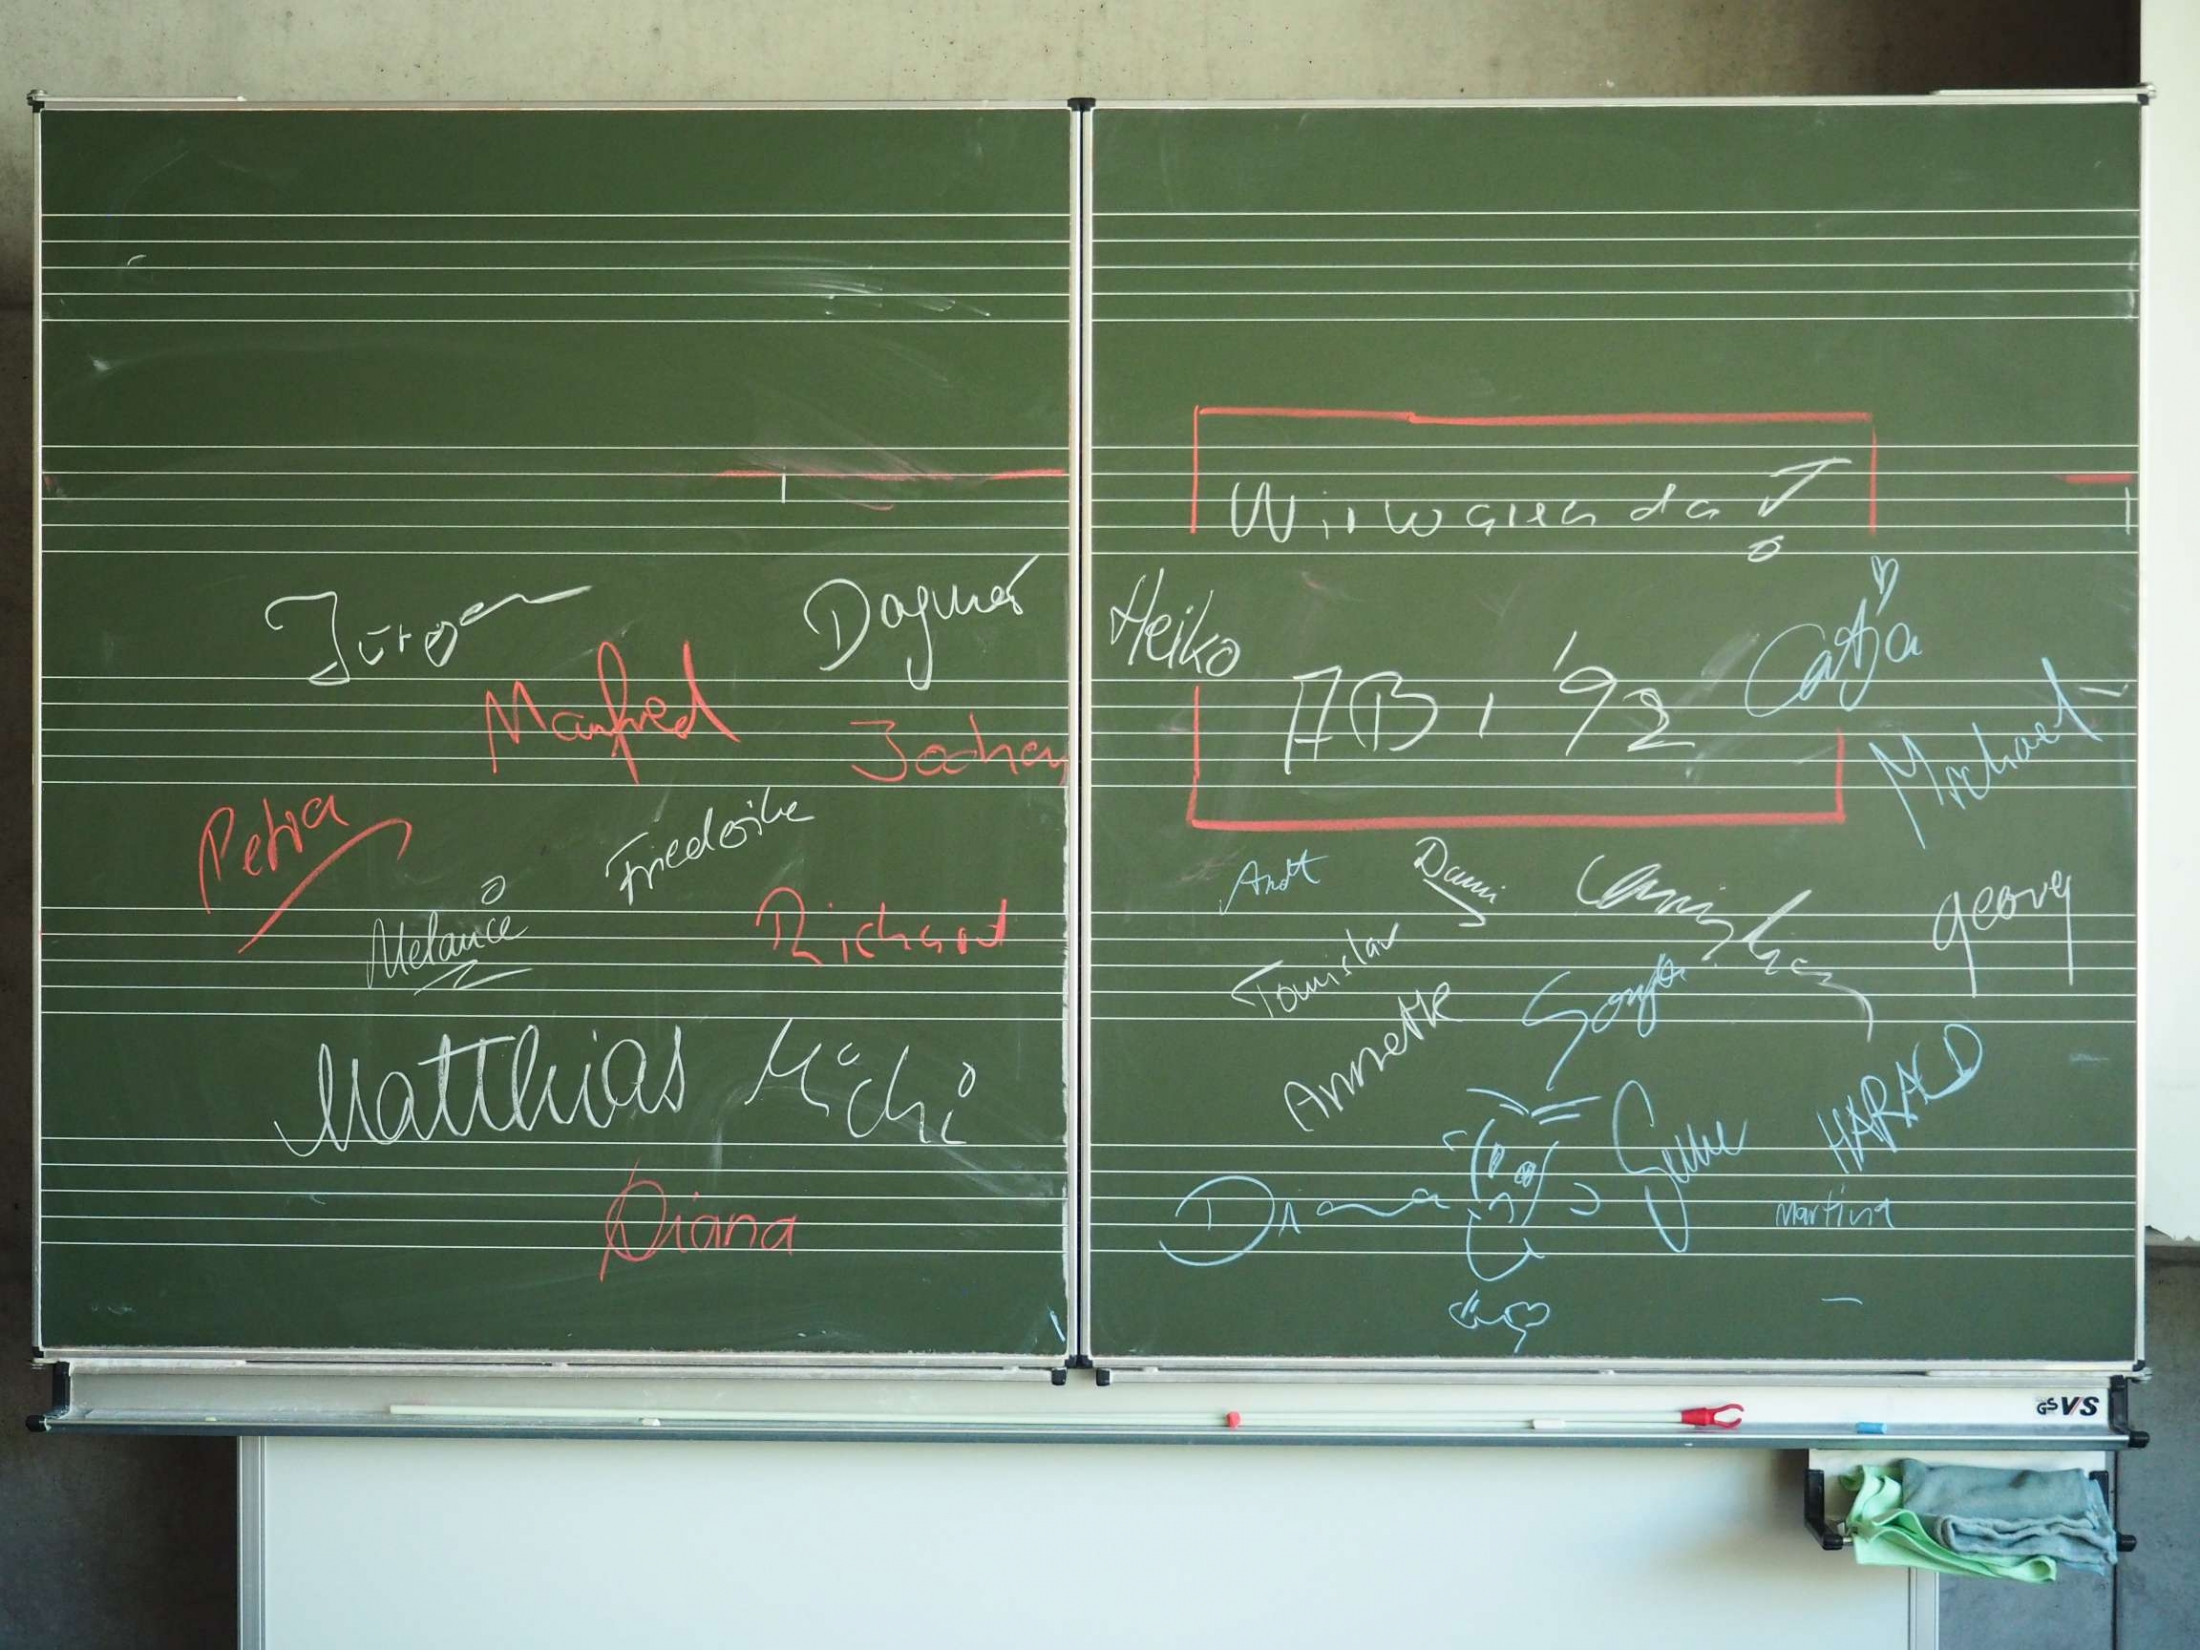 Jürgen
Dagmar
Manfred
Jochen
Petra
Friederike
Melanie
Richard
Matthias
Michi
Diana
Wir waren da!
Heiko
ABI '92
Catja
Michael
Arndt
Dani
Georg
Tomislav
Annette
Sonja
HARALD
Diana
Martina
GS VS